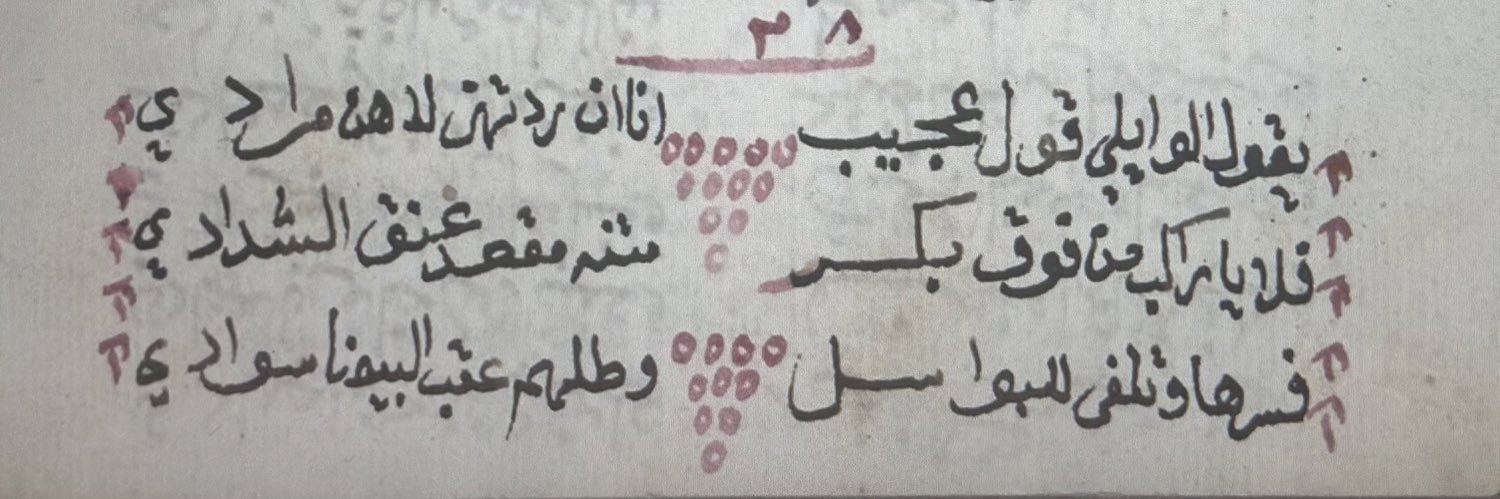 ٣٨
يقول الوايلي قول عجيب انا ان ردتهن لا هن مرادي
فلا يا راكب من فوق بكر متنه مقصد عنق الشدادي
فسرها وتلفي للبواسل وظلهم عقب البيضا سوادي